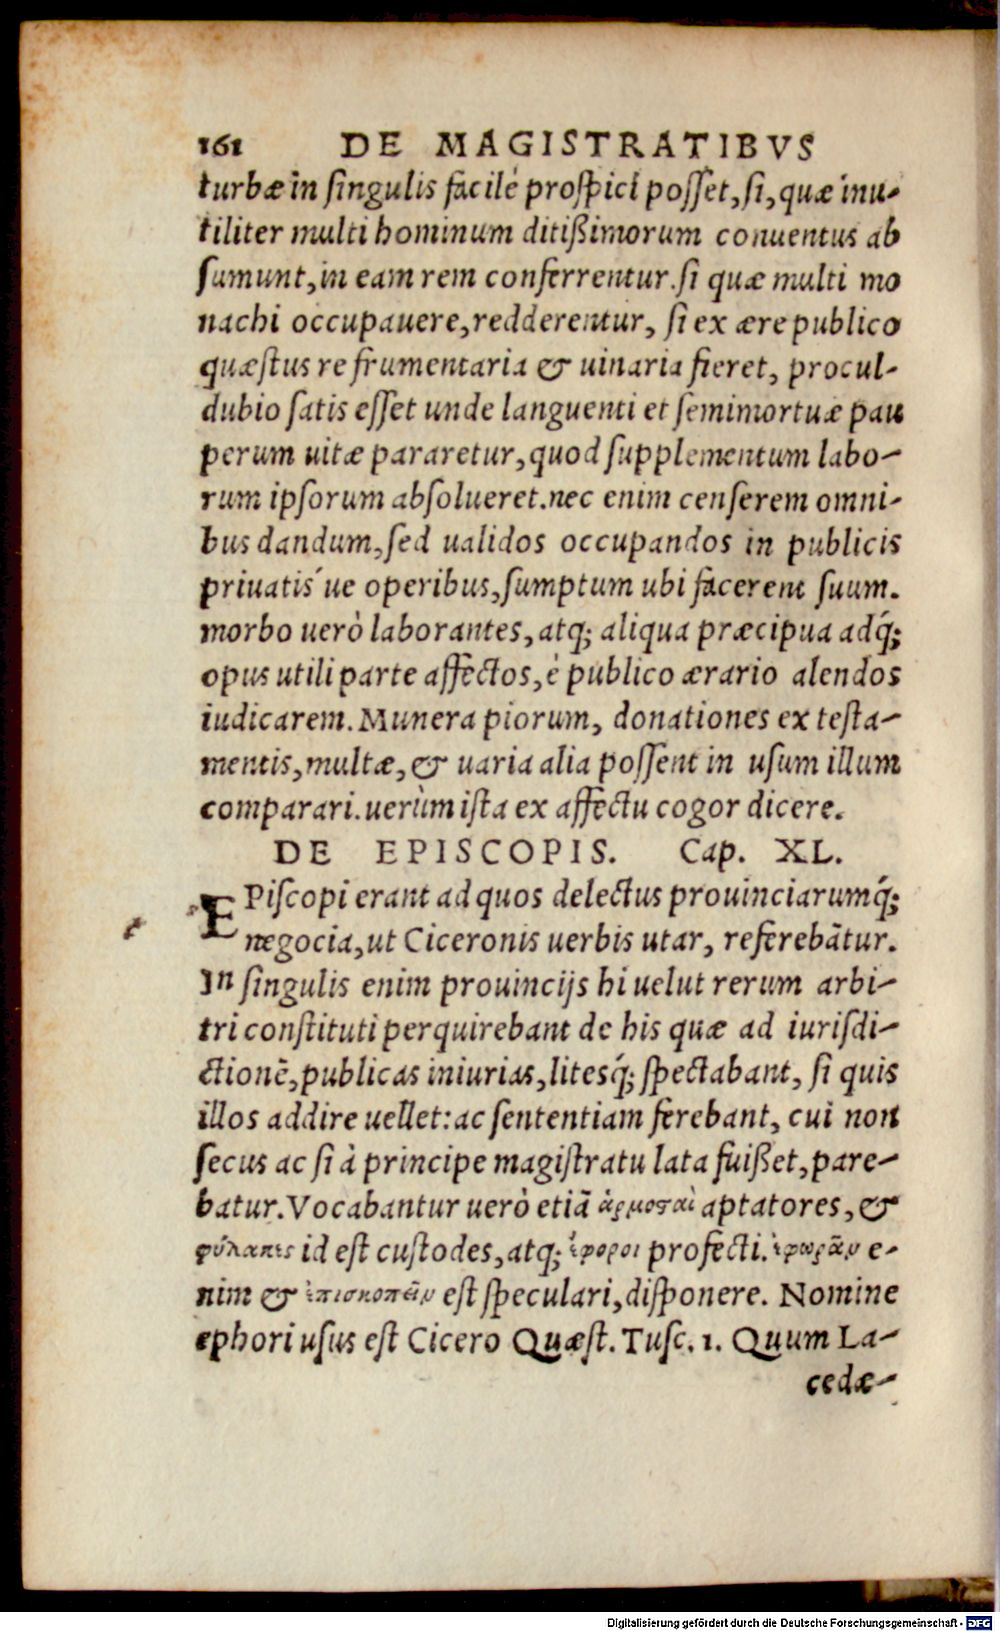 161 DE MAGISTRATIBVS
turbæ in ſingulis facilè proſpici poſſet, ſi, quæ inu-
tiliter multi hominum ditiſsimorum conuentus ab
ſumunt, in eam rem conferrentur. ſi quæ multi mo
nachi occupauere, redderentur, ſi ex ære publico
quæſtus re frumentaria & uinaria fieret, procul-
dubio ſatis eſſet unde languenti et ſemimortuæ pau
perum uitæ pararetur, quod ſupplementum labo-
rum ipſorum abſolueret. nec enim cenſerem omni-
bus dandum, ſed ualidos occupandos in publicis
priuatis´ue operibus, ſumptum ubi facerent ſuum.
morbo uerò laborantes, atq; aliqua præcipua adq́;
opus utili parte affectos, è publico ærario alendos
iudicarem. Munera piorum, donationes ex teſta-
mentis, multæ, & uaria alia poſſent in uſum illum
comparari. uerùm iſta ex affectu cogor dicere.
DE EPISCOPIS. Cap. XL.
EPiſcopi erant ad quos delectus prouinciarumq́;
negocia, ut Ciceronis uerbis utar, referebãtur.
In ſingulis enim prouincijs hi uelut rerum arbi-
tri conſtituti perquirebant de his quæ ad iuriſdi-
ctionẽ, publicas iniurias, litesq́; ſpectabant, ſi quis
illos addire uellet: ac ſententiam ferebant, cui non
ſecus ac ſi à principe magiſtratu lata fuiſset, pare-
batur. Vocabantur uerò etiã ἁρμοσαὶ aptatores, &
φύλακες id eſt cuſtodes, atq; ἔφοροι profecti. ἐφωρᾶν e-
nim & ἐπισκοπεῖν eſt ſpeculari, diſponere. Nomine
ephori uſus eſt Cicero Quæſt. Tuſc. 1. Quum La-
cedæ-
Digitalisierung gefördert durch die Deutsche Forschungsgemeinschaft - DFG